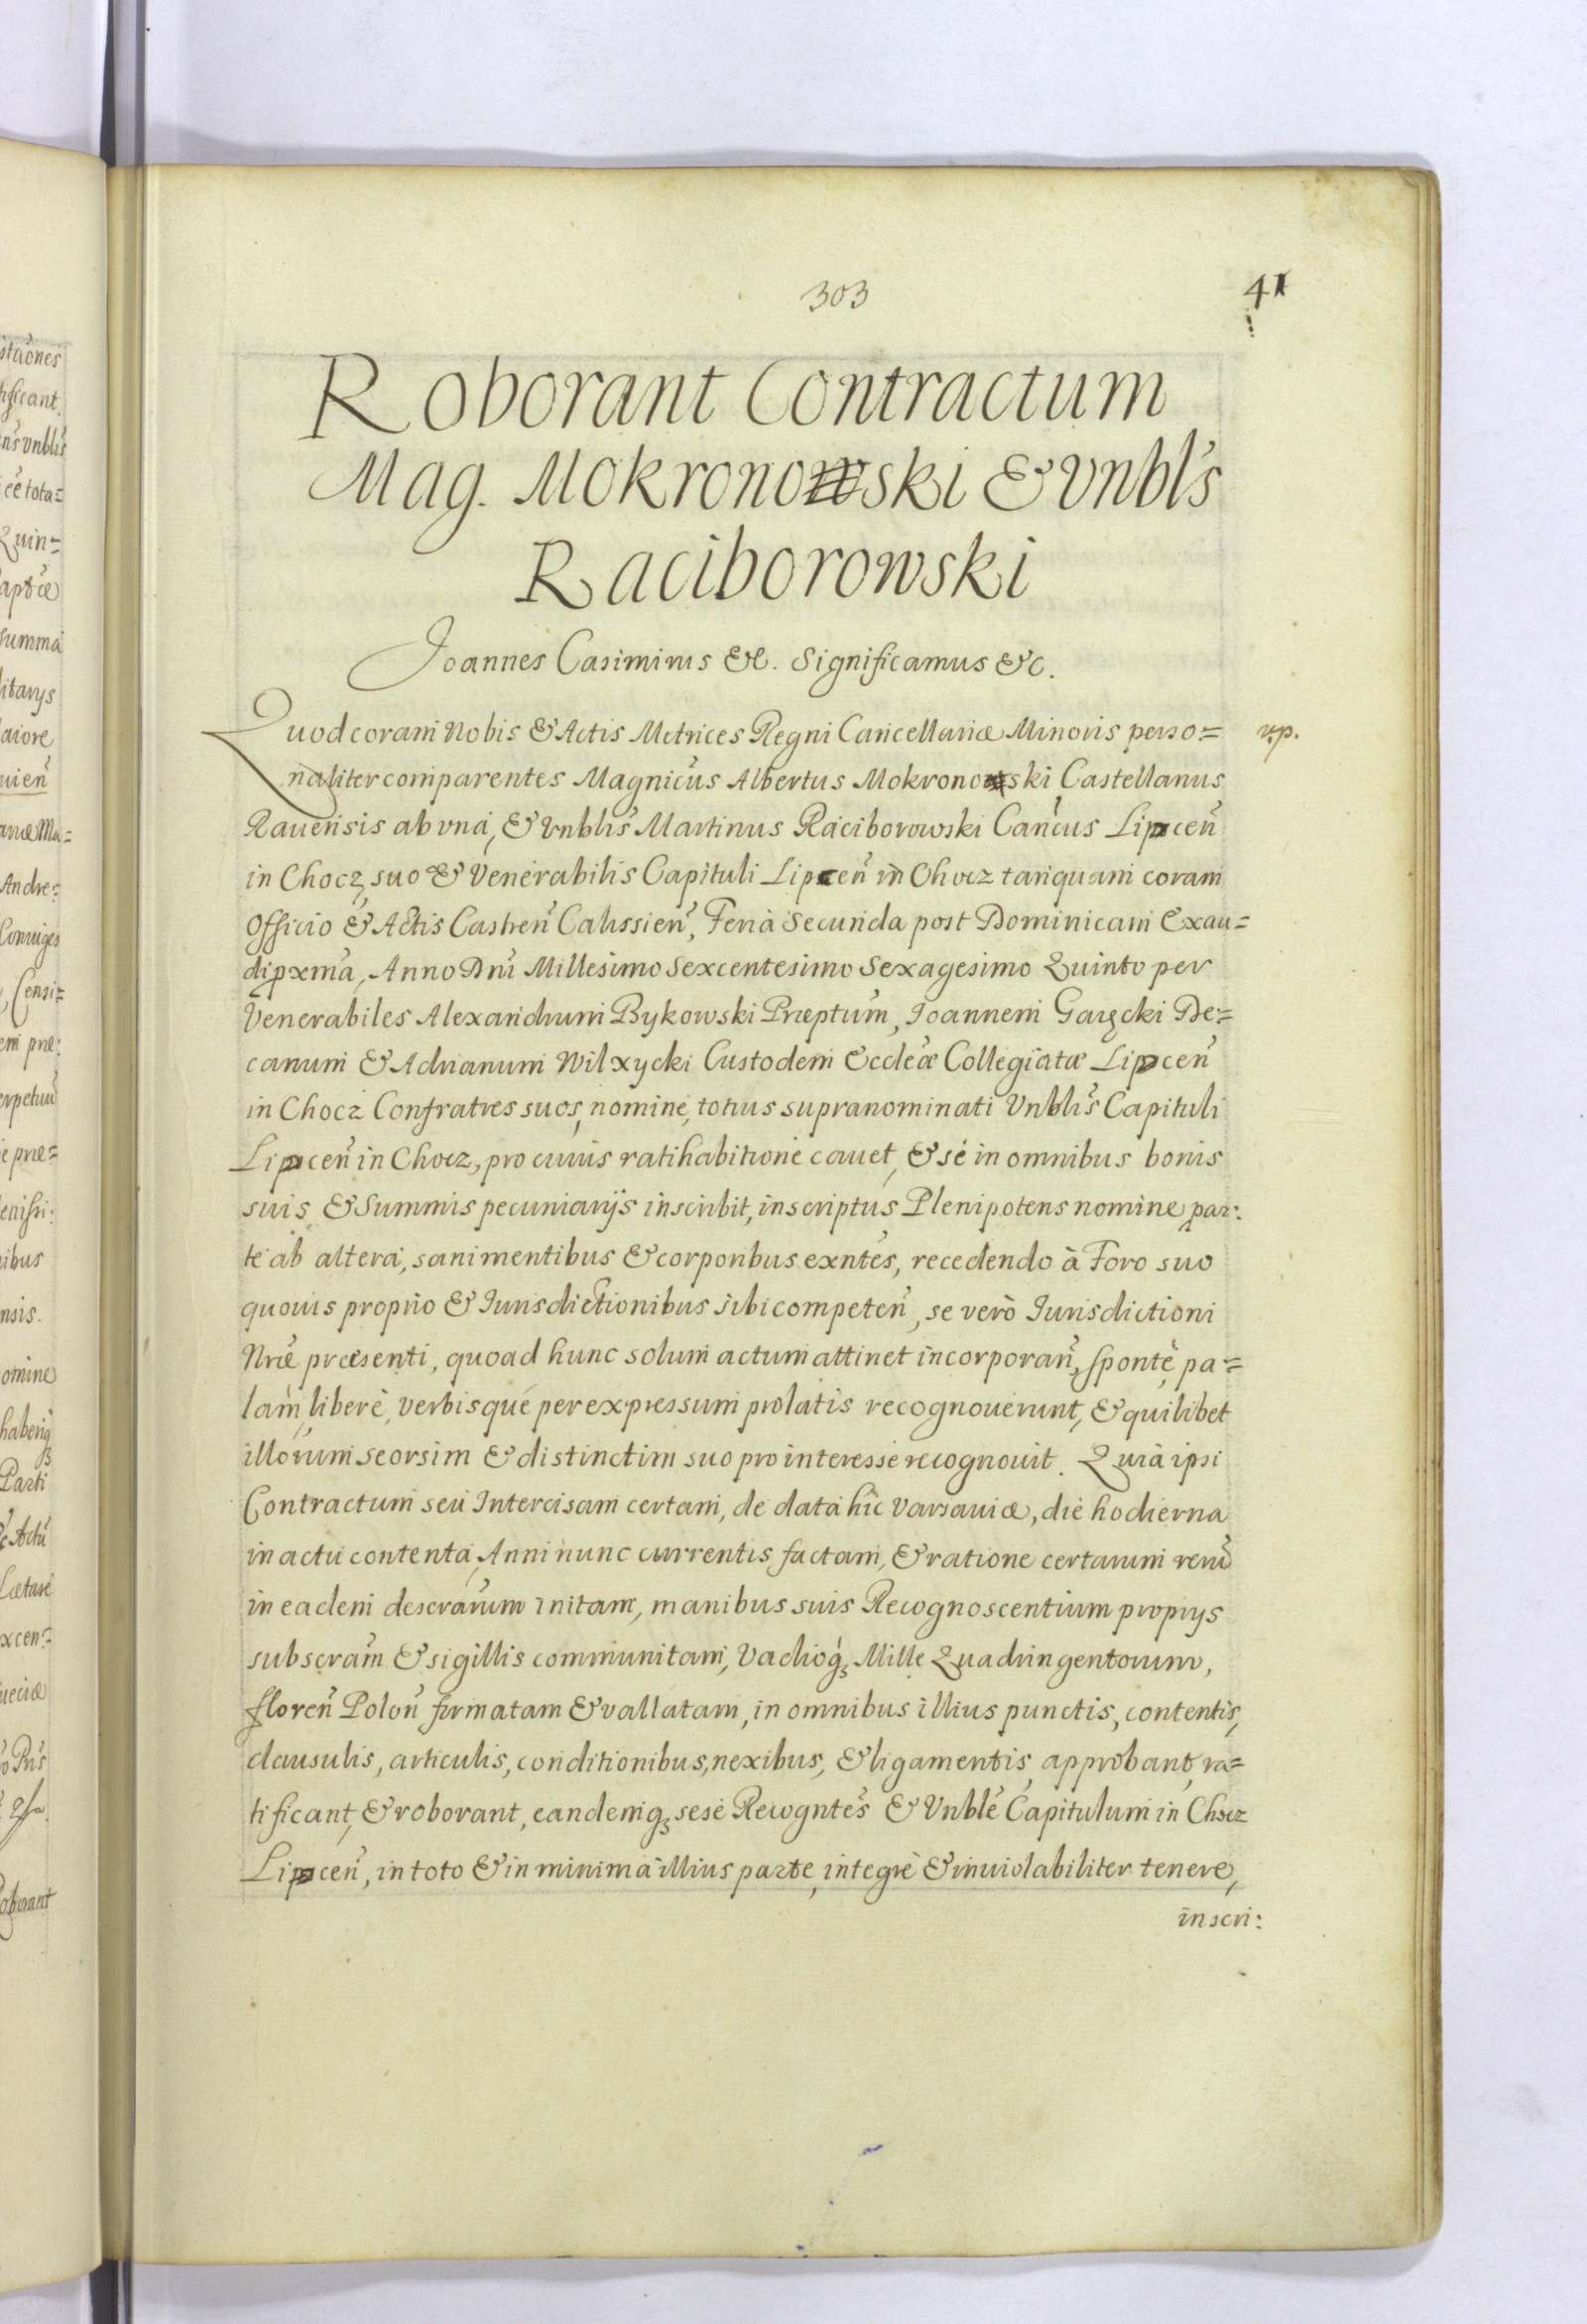 303
41
Roborant Contractum
Mag. Mokronowski & Vnbl's
Raciborowski
Joannes Casimirus &c. Significamus &c.
Quod coram Nobis & Actis Metrices Regni Cancellariæ Minoris perso=
up.
naliter comparentes Magnicus Albertus Mokronowski Castellanus
Rauensis ab vna, & Vnblis Martinus Raciborowski Can̄cus Lipcen̄
in Chocz, suo & Venerabilis Capituli Lipcen̄ in Chocz tanquam coram
Officio & Actis Castren̄ Calissien̄, Feria Secunda post Dominicam Exau=
di pxma, Anno Dni Millesimo Sexcentesimo Sexagesimo Quinto per
Venerabiles Alexandrum Bykowski Præptum, Joannem Garęcki De=
canum & Adrianum Wilxycki Custodem Eccleæ Collegiatæ Lipcen̄
in Chocz Confratres suos, nomine, totius supranominati Vnblis Capituli
Lipcen̄ in Chocz, pro cuius ratihabitione cauet, & se in omnibus bonis
suis & Summis pecuniarijs inscribit, inscriptus Plenipotens nomine par:
te ab altera, sani mentibus & corporibus exntes, recedendo à Foro suo
quouis proprio & Jurisdictionibus sibi competen̄, se verò Jurisdictioni
Nræ præsenti, quoad hunc solum actum attinet incorporan̄, sponte, pa=
lam, libere, verbisque per expressum prolatis recognouerunt, & quilibet
illorum seorsim & distinctim suo pro interesse recognouit. Quia ipsi
Contractum seu Intercisam certam, de data hîc Varsauiæ, die hodierna
in actu contenta, Anni nunc currentis factam, & ratione certarum rerū
in eadem descrarum initam, manibus suis Recognoscentium proprys
subscram & sigillis communitam, Vadioq́ Mille Quadringentorum,
floren̄ Polon̄ firmatam & vallatam, in omnibus illius punctis, contentis,
clausulis, articulis, conditionibus, nexibus, & ligamentis, approbant, ra=
tificant, & roborant, eandemq sese Recogntes & Vnble Capitulum in Chocz
Lipcen̄, in toto & in minima illius parte, integrè & inuiolabiliter tenere,
inscri: